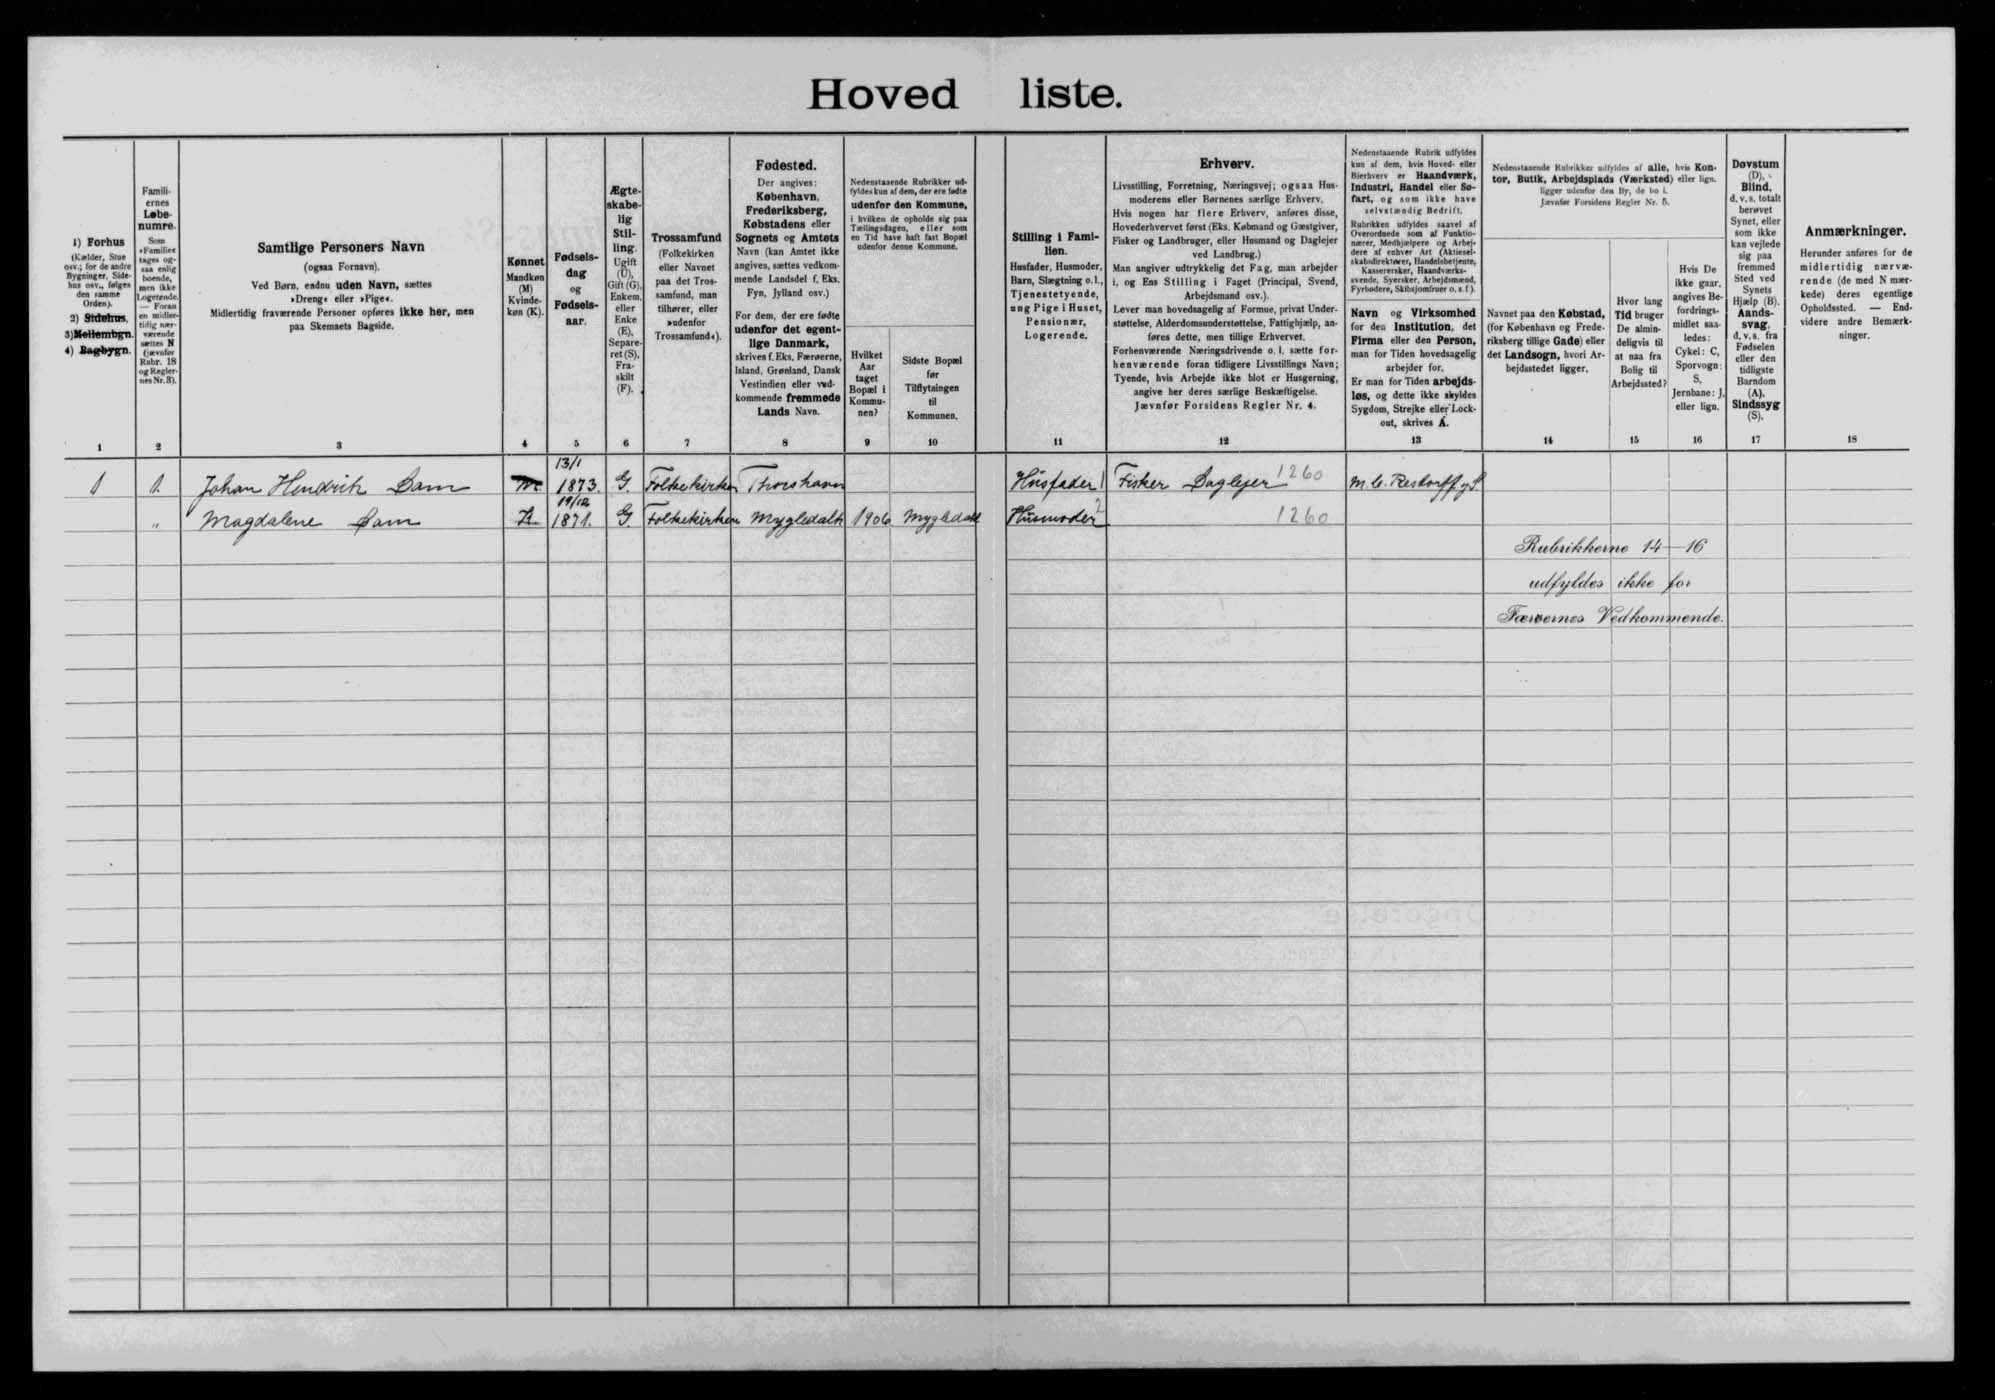 Hoved liste.
1) Forhus
(Kælder, Stue
osv.; for de andre
Bygninger, Side-
hus osv., følges
den samme
Orden).
2) Sidehus,
3) Mellembgn.
4) Bagbygn.
1
Famili-
ernes
Løbe-
numre.
Som
»Familie«
tages og-
saa enlig
boende,
men ikke
Logerende.
— Foran
en midler-
tidig nær-
værende
sættes N
(jævnfør
Rubr. 18
og Regler-
nes Nr. 3).
2
Samtlige Personers Navn
(ogsaa Fornavn).
Ved Børn, endnu uden Navn, sættes
»Dreng« eller »Pige«.
Midlertidig fraværende Personer opføres ikke her, men
paa Skemaets Bagside.
3
Kønnet
Mandkøn
(M)
Kvinde-
køn (K).
4
Fødsels-
dag
og
Fødsels-
aar.
5
Ægte-
skabe-
lig
Stil-
ling.
Ugift
(U),
Gift (G),
Enkem.
eller
Enke
(E),
Separe-
ret (S),
Fra-
skilt
(F).
6
Trossamfund
(Folkekirken
eller Navnet
paa det Tros-
samfund, man
tilhører, eller
»udenfor
Trossamfund«).
7
Fødested.
Der angives:
København,
Frederiksberg,
Købstadens eller
Sognets og Amtets
Navn (kan Amtet ikke
angives, sættes vedkom-
mende Landsdel f. Eks.
Fyn, Jylland osv.)
For dem, der ere fødte
udenfor det egent-
lige Danmark,
skrives f. Eks. Færøerne,
Island, Grønland, Dansk
Vestindien eller ved-
kommende fremmede
Lands Navn.
8
Nedenstaaende Rubrikker ud-
fyldes kun af dem, der ere fødte
udenfor den Kommune,
i hvilken de opholde sig paa
Tællingsdagen, eller som
en Tid have haft fast Bopæl
udenfor denne Kommune.
Hvilket
Aar
taget
Bopæl i
Kommu-
nen?
9
Sidste Bopæl
før
Tilflytningen
til
Kommunen.
10
Stilling i Fami-
lien.
Husfader, Husmoder,
Barn, Slægtning o. l.,
Tjenestetyende,
ung Pige i Huset,
Pensionær,
Logerende.
11
Erhverv.
Livsstilling, Forretning, Næringsvej; ogsaa Hus-
moderens eller Børnenes særlige Erhverv.
Hvis nogen har flere Erhverv, anføres disse,
Hovederhvervet først (Eks. Købmand og Gæstgiver,
Fisker og Landbruger, eller Husmand og Daglejer
ved Landbrug.)
Man angiver udtrykkelig det Fag, man arbejder
i, og Ens Stilling i Faget (Principal, Svend,
Arbejdsmand osv.).
Lever man hovedsagelig af Formue, privat Under-
støttelse, Alderdomsunderstøttelse, Fattighjælp, an-
føres dette, men tillige Erhvervet.
Forhenværende Næringsdrivende o. l. sætte for-
henværende foran tidligere Livsstillings Navn;
Tyende, hvis Arbejde ikke blot er Husgerning,
angive her deres særlige Beskæftigelse.
Jævnfør Forsidens Regler Nr. 4.
12
Nedenstaaende Rubrik udfyldes
kun af dem, hvis Hoved- eller
Bierhverv er Haandværk,
Industri, Handel eller Sø-
fart, og som ikke have
selvstændig Bedrift.
Rubrikken udfyldes saavel af
Overordnede som af Funktio-
nærer, Medhjælpere og Arbej-
dere af enhver Art (Aktiesel-
skabsdirektører, Handelsbetjente,
Kasserersker, Haandværks-
svende, Syersker, Arbejdsmænd,
Fyrbødere, Skibsjomfruer o. s. f.).
Navn og Virksomhed
for den Institution, det
Firma eller den Person,
man for Tiden hovedsagelig
arbejder for.
Er man for Tiden arbejds-
løs, og dette ikke skyldes
Sygdom, Strejke eller Lock-
out, skrives A.
13
Nedenstaaende Rubrikker udfyldes af alle, hvis Kon-
tor, Butik, Arbejdsplads (Værksted) eller lign.
ligger udenfor den By, de bo i.
Jævnfør Forsidens Regler Nr. 5.
Navnet paa den Købstad,
(for København og Frede-
riksberg tillige Gade) eller
det Landsogn, hvori Ar-
bejdsstedet ligger.
14
Hvor lang
Tid bruger
De almin-
deligvis til
at naa fra
Bolig til
Arbejdssted?
15
Hvis De
ikke gaar,
angives Be-
fordrings-
midlet saa-
ledes:
Cykel: C,
Sporvogn:
S,
Jernbane: J,
eller lign.
16
Døvstum
(D),
Blind,
d. v. s. totalt
berøvet
Synet, eller
som ikke
kan vejlede
sig paa
fremmed
Sted ved
Synets
Hjælp (B).
Aands-
svag,
d. v. s. fra
Fødselen
eller den
tidligste
Barndom
(A).
Sindssyg
(S).
17
Anmærkninger.
Herunder anføres for de
midlertidig nærvæ-
rende (de med N mær-
kede) deres egentlige
Opholdssted. — End-
videre andre Bemærk-
ninger.
18
1 1. Johan Hendrik Dam M. 13/1 1873. G. Folkekirken Thorshavn Husfader 1 Fisker Daglejer 1260 M. C. Restorff & S.
" Magdalene Dam K. 19/12 1871. G. Folkekirken Mygledahl 1906 Mygledahl Husmoder 2 1260
Rubrikkerne 14—16
udfyldes ikke for
Færøernes Vedkommende.